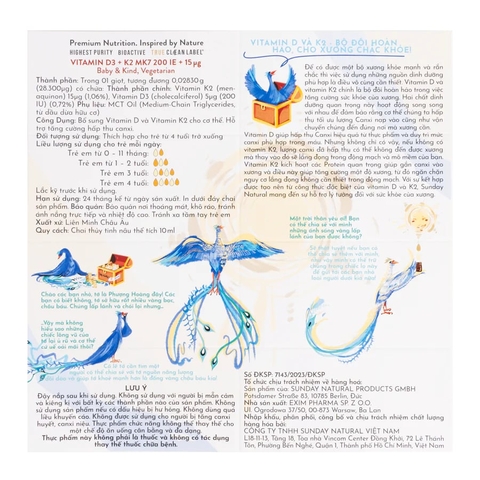 Premium Nutrition. Inspired by Nature
HIGHEST PURITY BIOACTIVE TRUE CLEAN LABEL
VITAMIN D3 + K2 MK7 200 IE + 15 µg
Baby & Kind, Vegetarian
Thành phần: Trong 01 giọt, tương đương 0,02830g
(28.300µg) có chứa: Thành phần chính: Vitamin K2 (men-
aquinon) 15µg (1,06%), Vitamin D3 (cholecalciferol) 5µg (200
IU) (0,72%) Phụ liệu: MCT Oil (Medium-Chain Triglycerides,
từ dầu dừa hữu cơ)
Công Dụng: Bổ sung Vitamin D và Vitamin K2 cho cơ thể. Hỗ
trợ tăng cường hấp thu canxi.
Đối tượng sử dụng: Thích hợp cho trẻ từ 4 tuổi trở xuống
Liều lượng sử dụng cho trẻ mỗi ngày:
Trẻ em từ 0 - 11 tháng:
Trẻ em từ 1 - 2 tuổi:
Trẻ em 3 tuổi:
Trẻ em 4 tuổi:
Lắc kỹ trước khi sử dụng.
Hạn sử dụng: 24 tháng kể từ ngày sản xuất. In dưới đáy chai
sản phẩm. Bảo quản: Bảo quản nơi thoáng mát, khô ráo, tránh
ánh nắng trực tiếp và nhiệt độ cao. Tránh xa tầm tay trẻ em
Xuất xứ: Liên Minh Châu Âu
Quy cách: Chai thủy tinh nâu thể tích 10ml
Chào các bạn nhỏ, tớ là Phượng Hoàng đây! Các
bạn có biết không, tớ có
LƯU Ý
Đậy nắp sau khi sử dụng. Không sử dụng với người bị mẫn cảm
và kiêng kị với bất kỳ các thành phần nào của sản phẩm. Không
sử dụng sản phẩm nếu có dấu hiệu bị hư hỏng. Không dùng quá
liều khuyến cáo. Không được sử dụng cho người bị tăng canxi
huyết, canxi niệu. Thực phẩm chức năng không thể thay thế cho
một chế độ ăn uống cân bằng và đa dạng.
Thực phẩm này không phải là thuốc và không có tác dụng
thay thế thuốc chữa bệnh.
VITAMIN D VÀ K2 : BỘ ĐÔI HOÀN
HẢO, CHO XƯƠNG CHẮC KHỎE!
Để có được một bộ xương khỏe mạnh và rắn
chắc thì việc sử dụng những nguồn dinh dưỡng
phù hợp là điều vô cùng cần thiết. Vitamin D và
Vitamin K2 chính là bộ đôi hoàn hảo trong việc
tăng cường sức khỏe của xương. Hai chất dinh
dưỡng quan trọng này hoạt động song song
với nhau để đảm bảo rằng cơ thể chúng ta hấp
thụ tối ưu lượng Canxi nạp vào cũng như vận
chuyển chúng đến đúng nơi mà xương cần.
Vitamin D giúp hấp thu Canxi hiệu quả từ thực phẩm và duy trì mức
canxi phù hợp trong máu. Nhưng không chỉ có vậy, nếu không có
vitamin K2, lượng canxi đã hấp thu có thể không đến được xương
mà thay vào đó sẽ lắng đọng trong động mạch và mô mềm của bạn.
Vitamin K2 kích hoạt các Protein quan trọng giúp gắn canxi vào
xương và điều này giúp tăng cường mật độ xương, từ đó ngăn chặn
nguy cơ lắng đọng không cần thiết trong động mạch. Với sự kết hợp
được tạo nên từ công thức đặc biệt của vitamin D và K2, Sunday
Natural mang đến sự hỗ trợ lý tưởng đối với sức khỏe của xương.
Số ĐKSP: 7143/2023/ĐKSP
Tổ chức chịu trách nhiệm về hàng hoá:
Sản phẩm của: SUNDAY NATURAL PRODUCTS GMBH
Potsdamer Straße 83, 10785 Berlin, Đức
Nhà sản xuất: EXIM PHARMA SP. Z O.O.
Ul. Ogrodowa 37/50, 00-873 Warsaw, Ba Lan
Nhập khẩu, phân phối, công bố và chịu trách nhiệm chất lượng
hàng hóa bởi:
CÔNG TY TNHH SUNDAY NATURAL VIỆT NAM
L18-11-13, Tầng 18, Tòa nhà Vincom Center Đồng Khởi, 72 Lê Thánh
Tôn, Phường Bến Nghé, Quận 1, Thành phố Hồ Chí Minh, Việt Nam